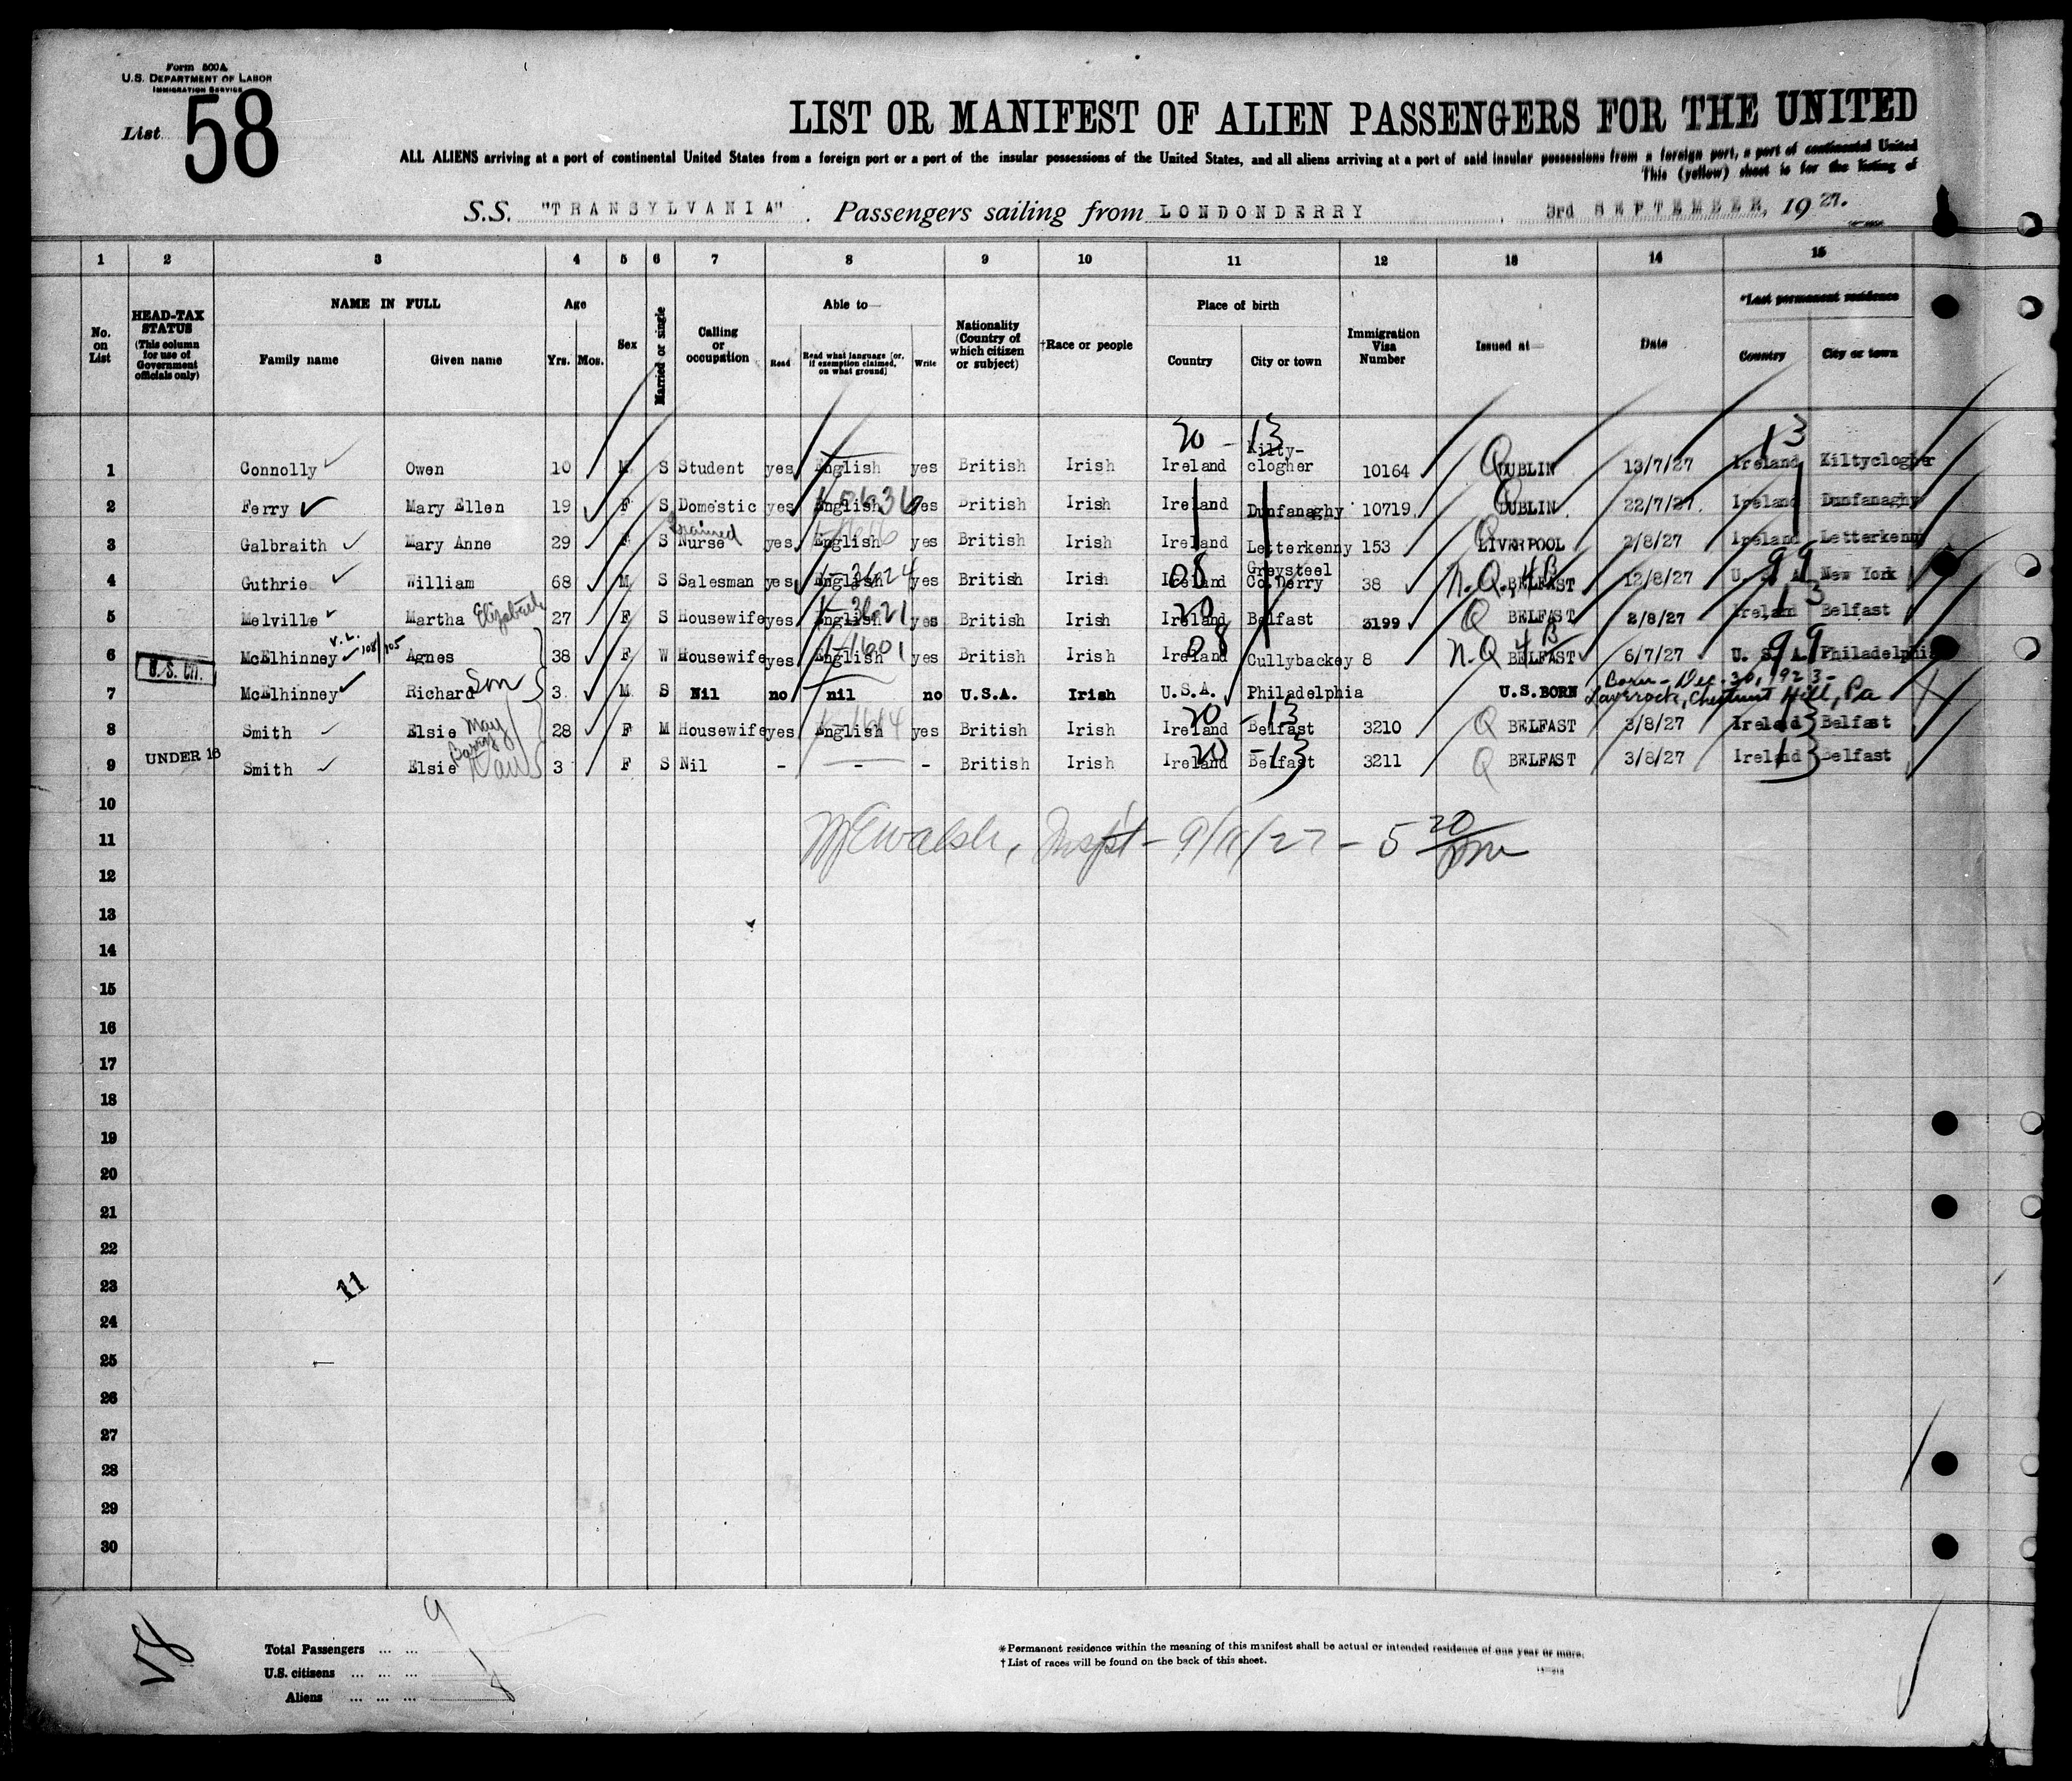 Form 500A
U.S. DEPARTMENT OF LABOR
IMMIGRATION SERVICE
List 58
LIST OR MANIFEST OF ALIEN PASSENGERS FOR THE UNITED
ALL ALIENS arriving at a port of continental United States from a foreign port or a port of the insular possessions of the United States, and all aliens arriving at a port of said insular possessions from a foreign port, a port of continental United
This (yellow) sheet is for the listing of
S.S. "TRANSYLVANIA". Passengers sailing from LONDONDERRY, 3rd SEPTEMBER, 1927.
1 2 3 4 5 6 7 8 9 10 11 12 13 14 15
No. on List
HEAD-TAX STATUS (This column for use of Government officials only)
NAME IN FULL
Family name Given name
Age
Yrs. Mos.
Sex
Married or single
Calling or occupation
Able to—
Read Read what language [or, if exemption claimed, on what ground] Write
Nationality (Country of which citizen or subject)
†Race or people
Place of birth
Country City or town
Immigration Visa Number
Issued at—
Date
*Last permanent residence
Country City or town
20 - 13 13
1 Connolly Owen 10 M S Student yes English yes British Irish Ireland Kilty-clogher 10164 Q DUBLIN 13/7/27 Ireland Kiltyclogher
2 Ferry Mary Ellen 19 F S Domestic yes English yes British Irish Ireland Dunfanaghy 10719 Q DUBLIN 22/7/27 Ireland Dunfanaghy
3 Galbraith Mary Anne 29 F S Trained Nurse yes English yes British Irish Ireland Letterkenny 153 Q LIVERPOOL 2/8/27 Ireland Letterkenny
4 Guthrie William 68 M S Salesman yes English yes British Irish 08 Ireland Greysteel Co. Derry 38 N.Q. 4B BELFAST 12/8/27 U.S.A. 99 New York
5 Melville Martha Elizabeth 27 F S Housewife yes English yes British Irish 20 Ireland Belfast 3199 Q BELFAST 2/8/27 Ireland 13 Belfast
V.L. 108/105
6 McElhinney Agnes 38 F W Housewife yes English yes British Irish 08 Ireland Cullybackey 8 N.Q 4B BELFAST 6/7/27 U.S.A. 99 Philadelphia
U.S. Cit.
Born - Dec. 30, 1923 -
7 McElhinney Richard Son 3 M S Nil no nil no U.S.A. Irish U.S.A. Philadelphia U.S. BORN Laverrock, Chestnut Hill, Pa
8 Smith Elsie May 28 F M Housewife yes English yes British Irish 20 Ireland - 13 Belfast 3210 Q BELFAST 3/8/27 Ireland 13 Belfast
UNDER 16
9 Smith Elsie 3 F S Nil - - - British Irish 20 Ireland - 13 Belfast 3211 Q BELFAST 3/8/27 Ireland 13 Belfast
10
11 Walsh, Insp't - 9/11/27 - 5 20 pm
12
13
14
15
16
17
18
19
20
21
22
23
11
24
25
26
27
28
29
30
Total Passengers ... ... 9
U.S. citizens ... ... ... 1
Aliens ... ... ... 8
*Permanent residence within the meaning of this manifest shall be actual or intended residence of one year or more.
†List of races will be found on the back of this sheet.